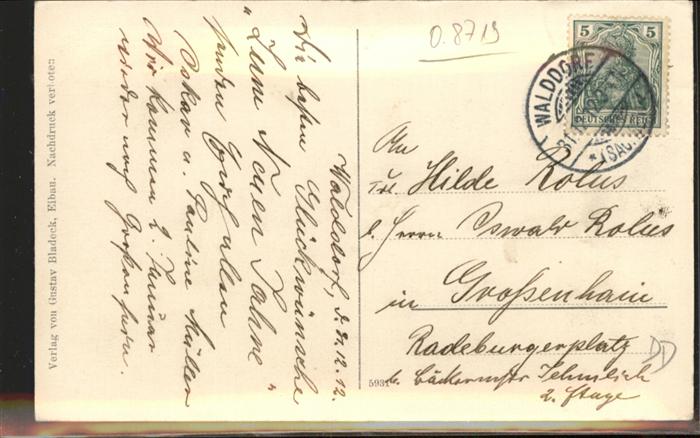 Walddorf, d. 31.12.12.
Die besten Glückwünsche
"Zum Neuen Jahre"
senden Euch allen
Oskar u. Pauline Müller
Wir kommen 2. Januar
wieder nach Großenhain.
Verlag von Gustav Bladeck, Eibau. Nachdruck verboten
0.8719
5
5
DEUTSCHES REICH
WALDDORF
(SACHS
An
Frl. Hilde Rolus
b. Herrn Oswald Rolus
in Großenhain
Radeburgerplatz
b. Bäckermstr. Tehmlich
2. Etage
5931
DD